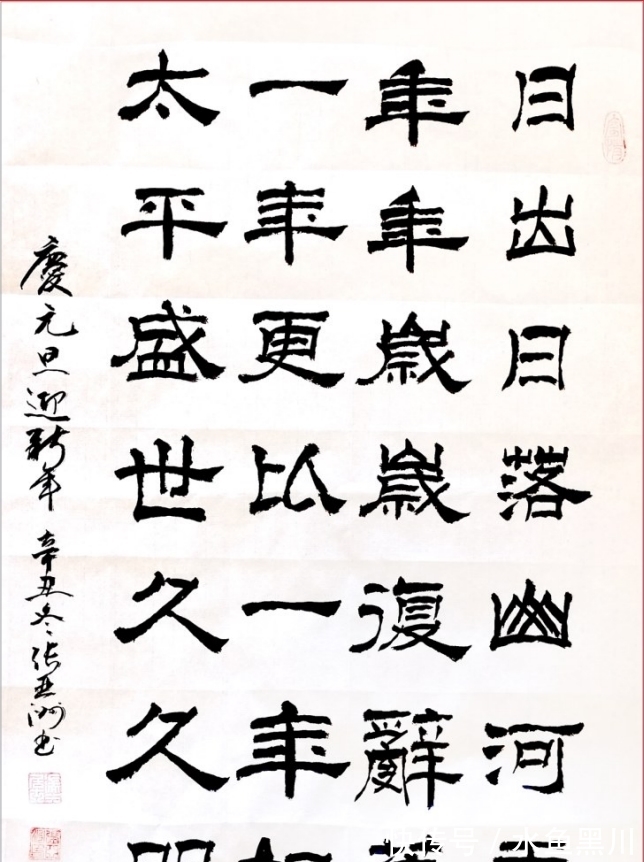 日出日落幽河
年年歲歲復辭
一年更以一年
太平盛世久久
慶元旦迎新年 辛丑冬张亚洲书
快传号 / 水鱼黑川